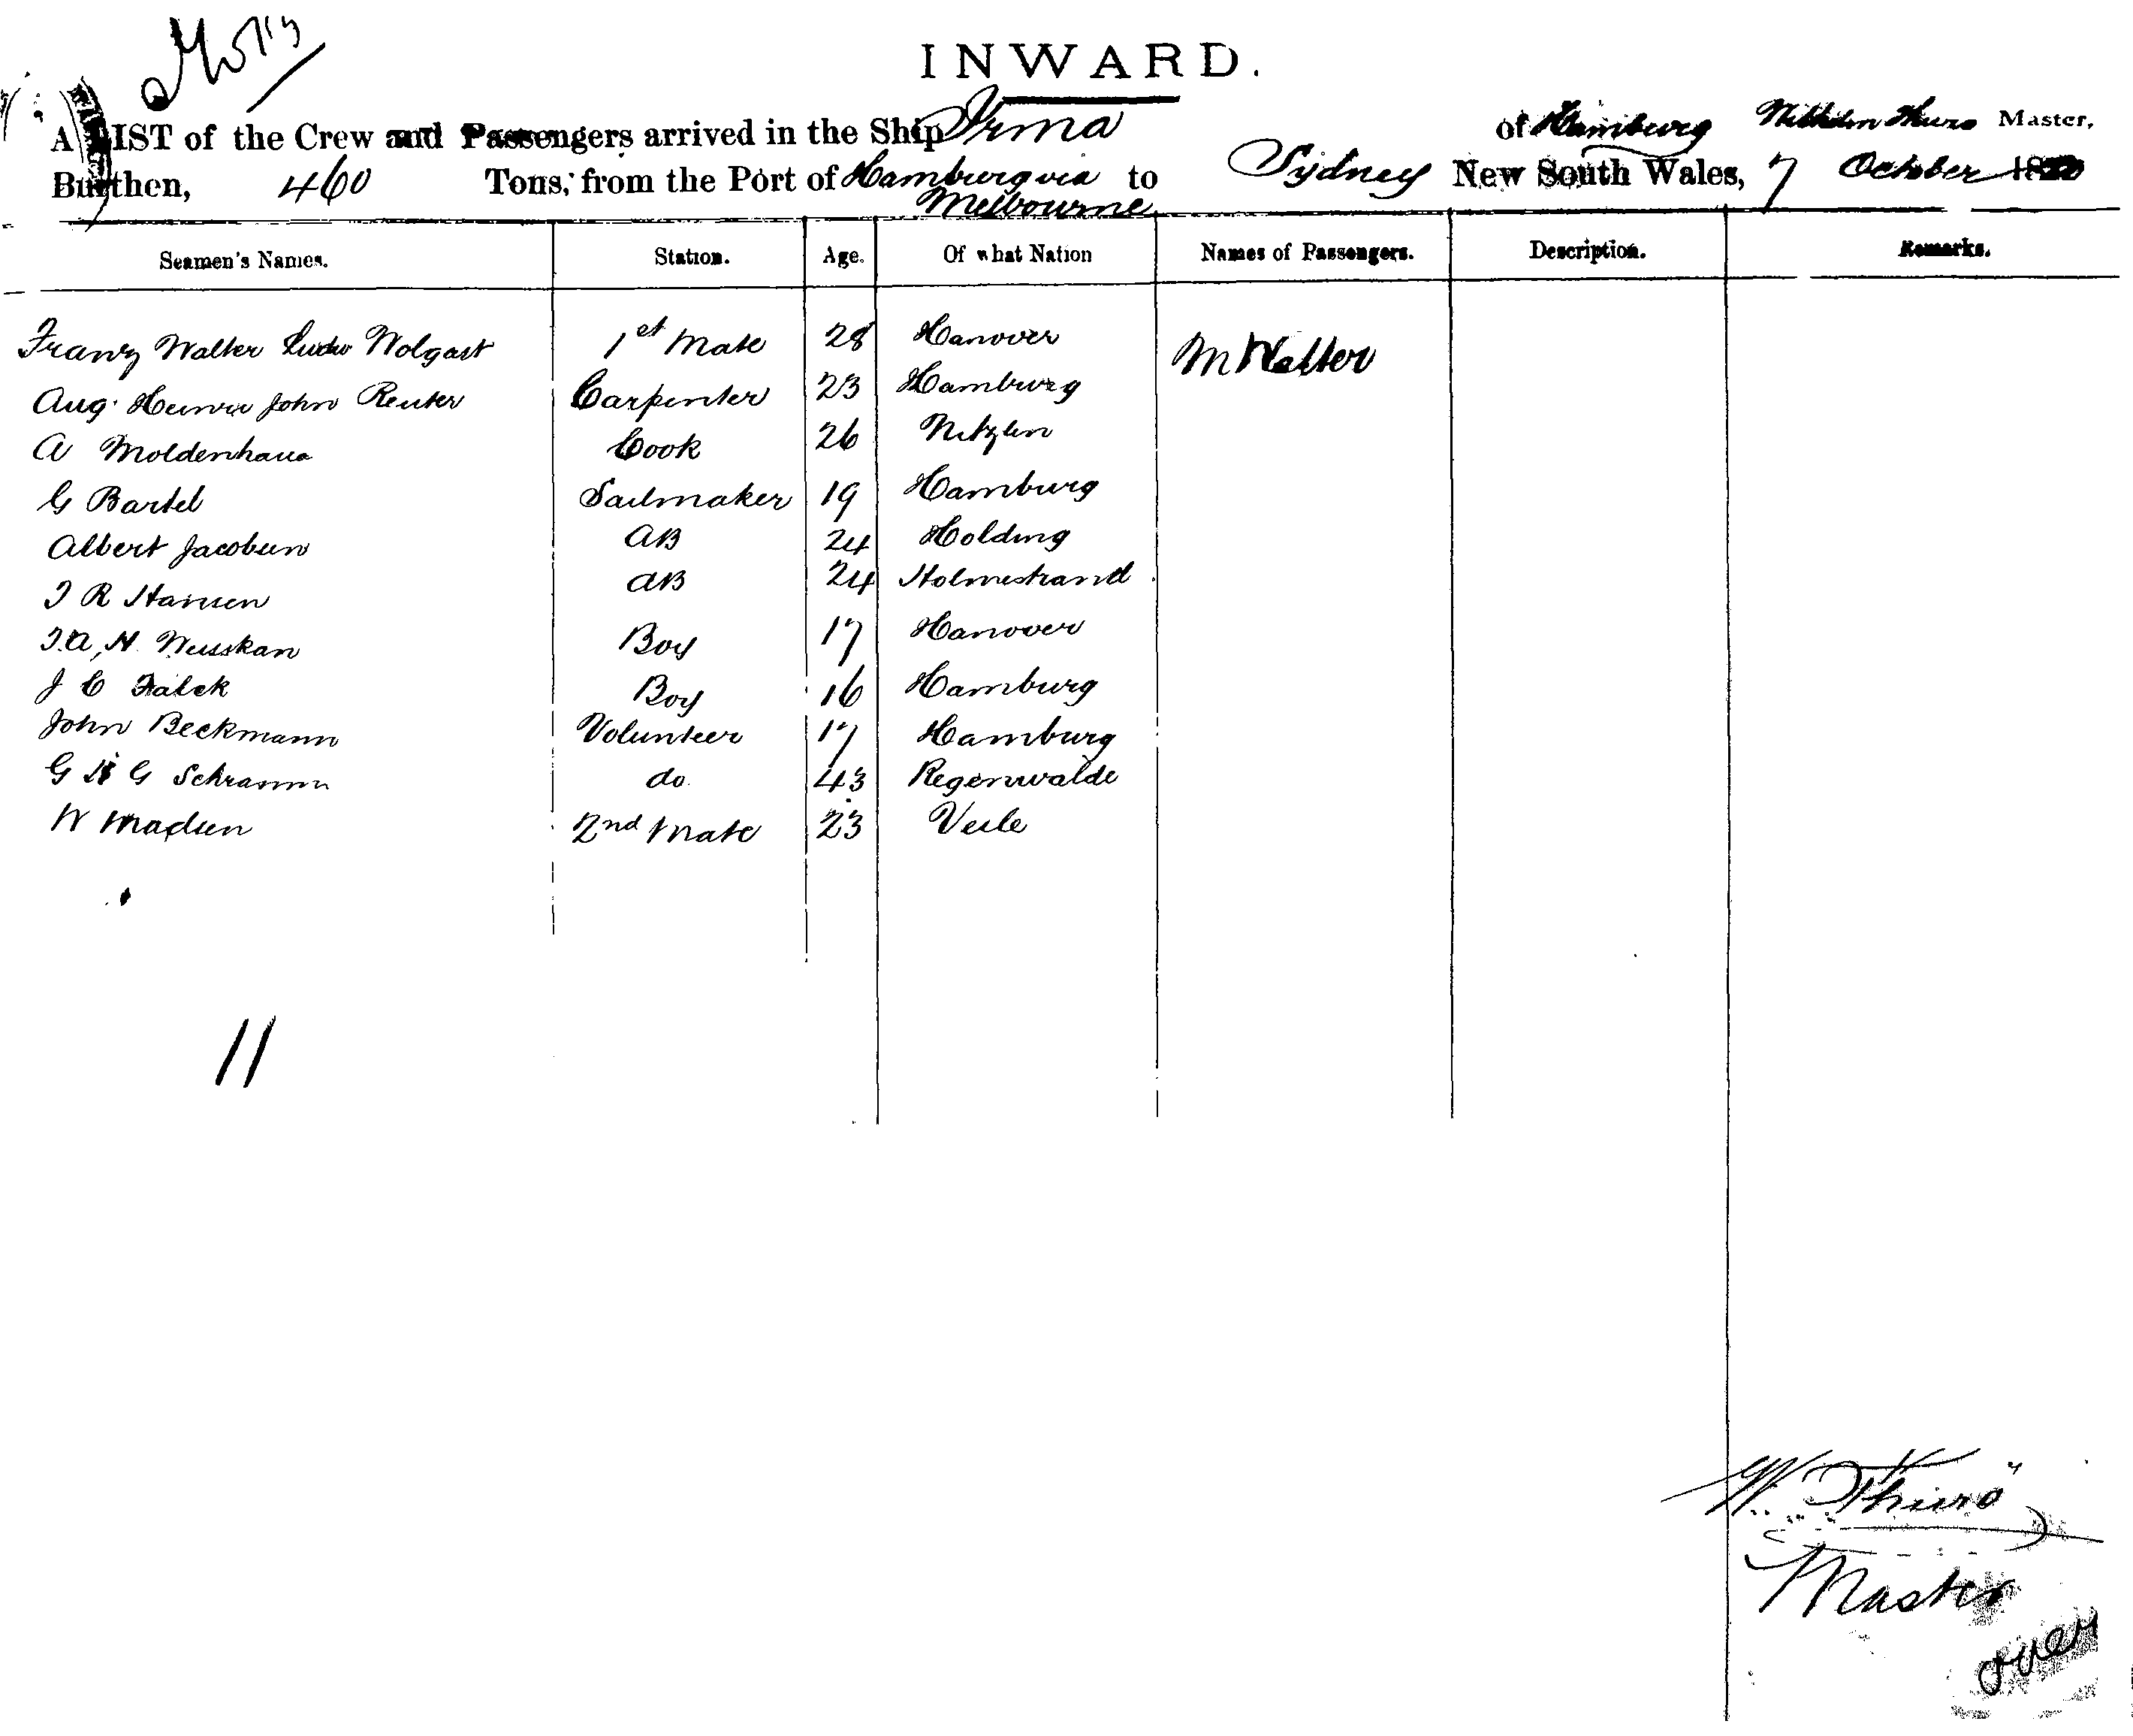 INWARD.
A LIST of the Crew and Passengers arrived in the Ship Irma of Hamburg Wilhelm Thuro Master,
Burthen, 460 Tons, from the Port of Hamburg via Melbourne to Sydney New South Wales, 7 October
Seamen's Names. Station. Age. Of what Nation Names of Passengers. Description. Remarks.
Franz Walter Wolgast 1st Mate 28 Hanover M Walter
Aug. John Reuter Carpenter 23 Hamburg
A Cook 26
G Bartel Sailmaker 19 Hamburg
Albert Jacobsen AB 24 Holding
J R Hansen AB 24 Holmestrand
J.A, H. Boy 17 Hanover
J C Falck Boy 16 Hamburg
John Beckmann Volunteer 17 Hamburg
G G Schramm do 43 Regenwalde
W Madsen 2nd Mate 23 Veile
11
W. Thurö
Master
over